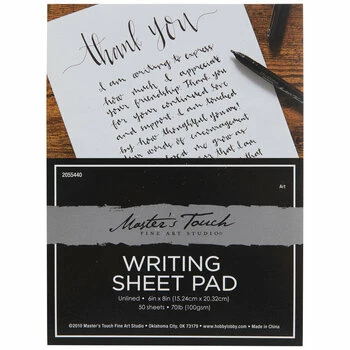 thank you
I am writing to express
how much I appreciate
your friendship. Thank you
for your continued love
and support. I am touched
by how thoughtful you are!
words of encouragement
helped me grow as
that I am
2055440
Art
Master's Touch
FINE ART STUDIO®
WRITING
SHEET PAD
Unlined • 6in x 8in (15.24cm x 20.32cm)
50 sheets • 70lb (100gsm)
©2010 Master's Touch Fine Art Studio • Oklahoma City, OK 73179 • www.hobbylobby.com • Made in China